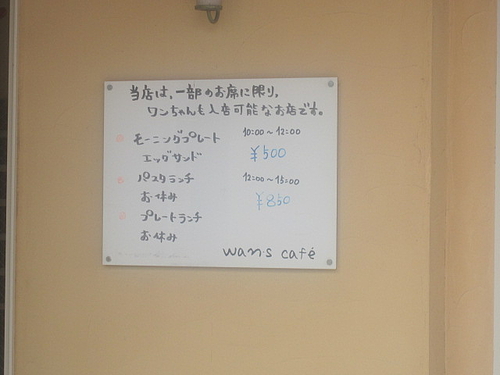 当店は、一部のお席に限り、
ワンちゃんも入店可能なお店です。
モーニングプレート 10:00～12:00
エッグサンド ¥500
パスタランチ 12:00～15:00
お休み ¥850
プレートランチ
お休み
wan's café